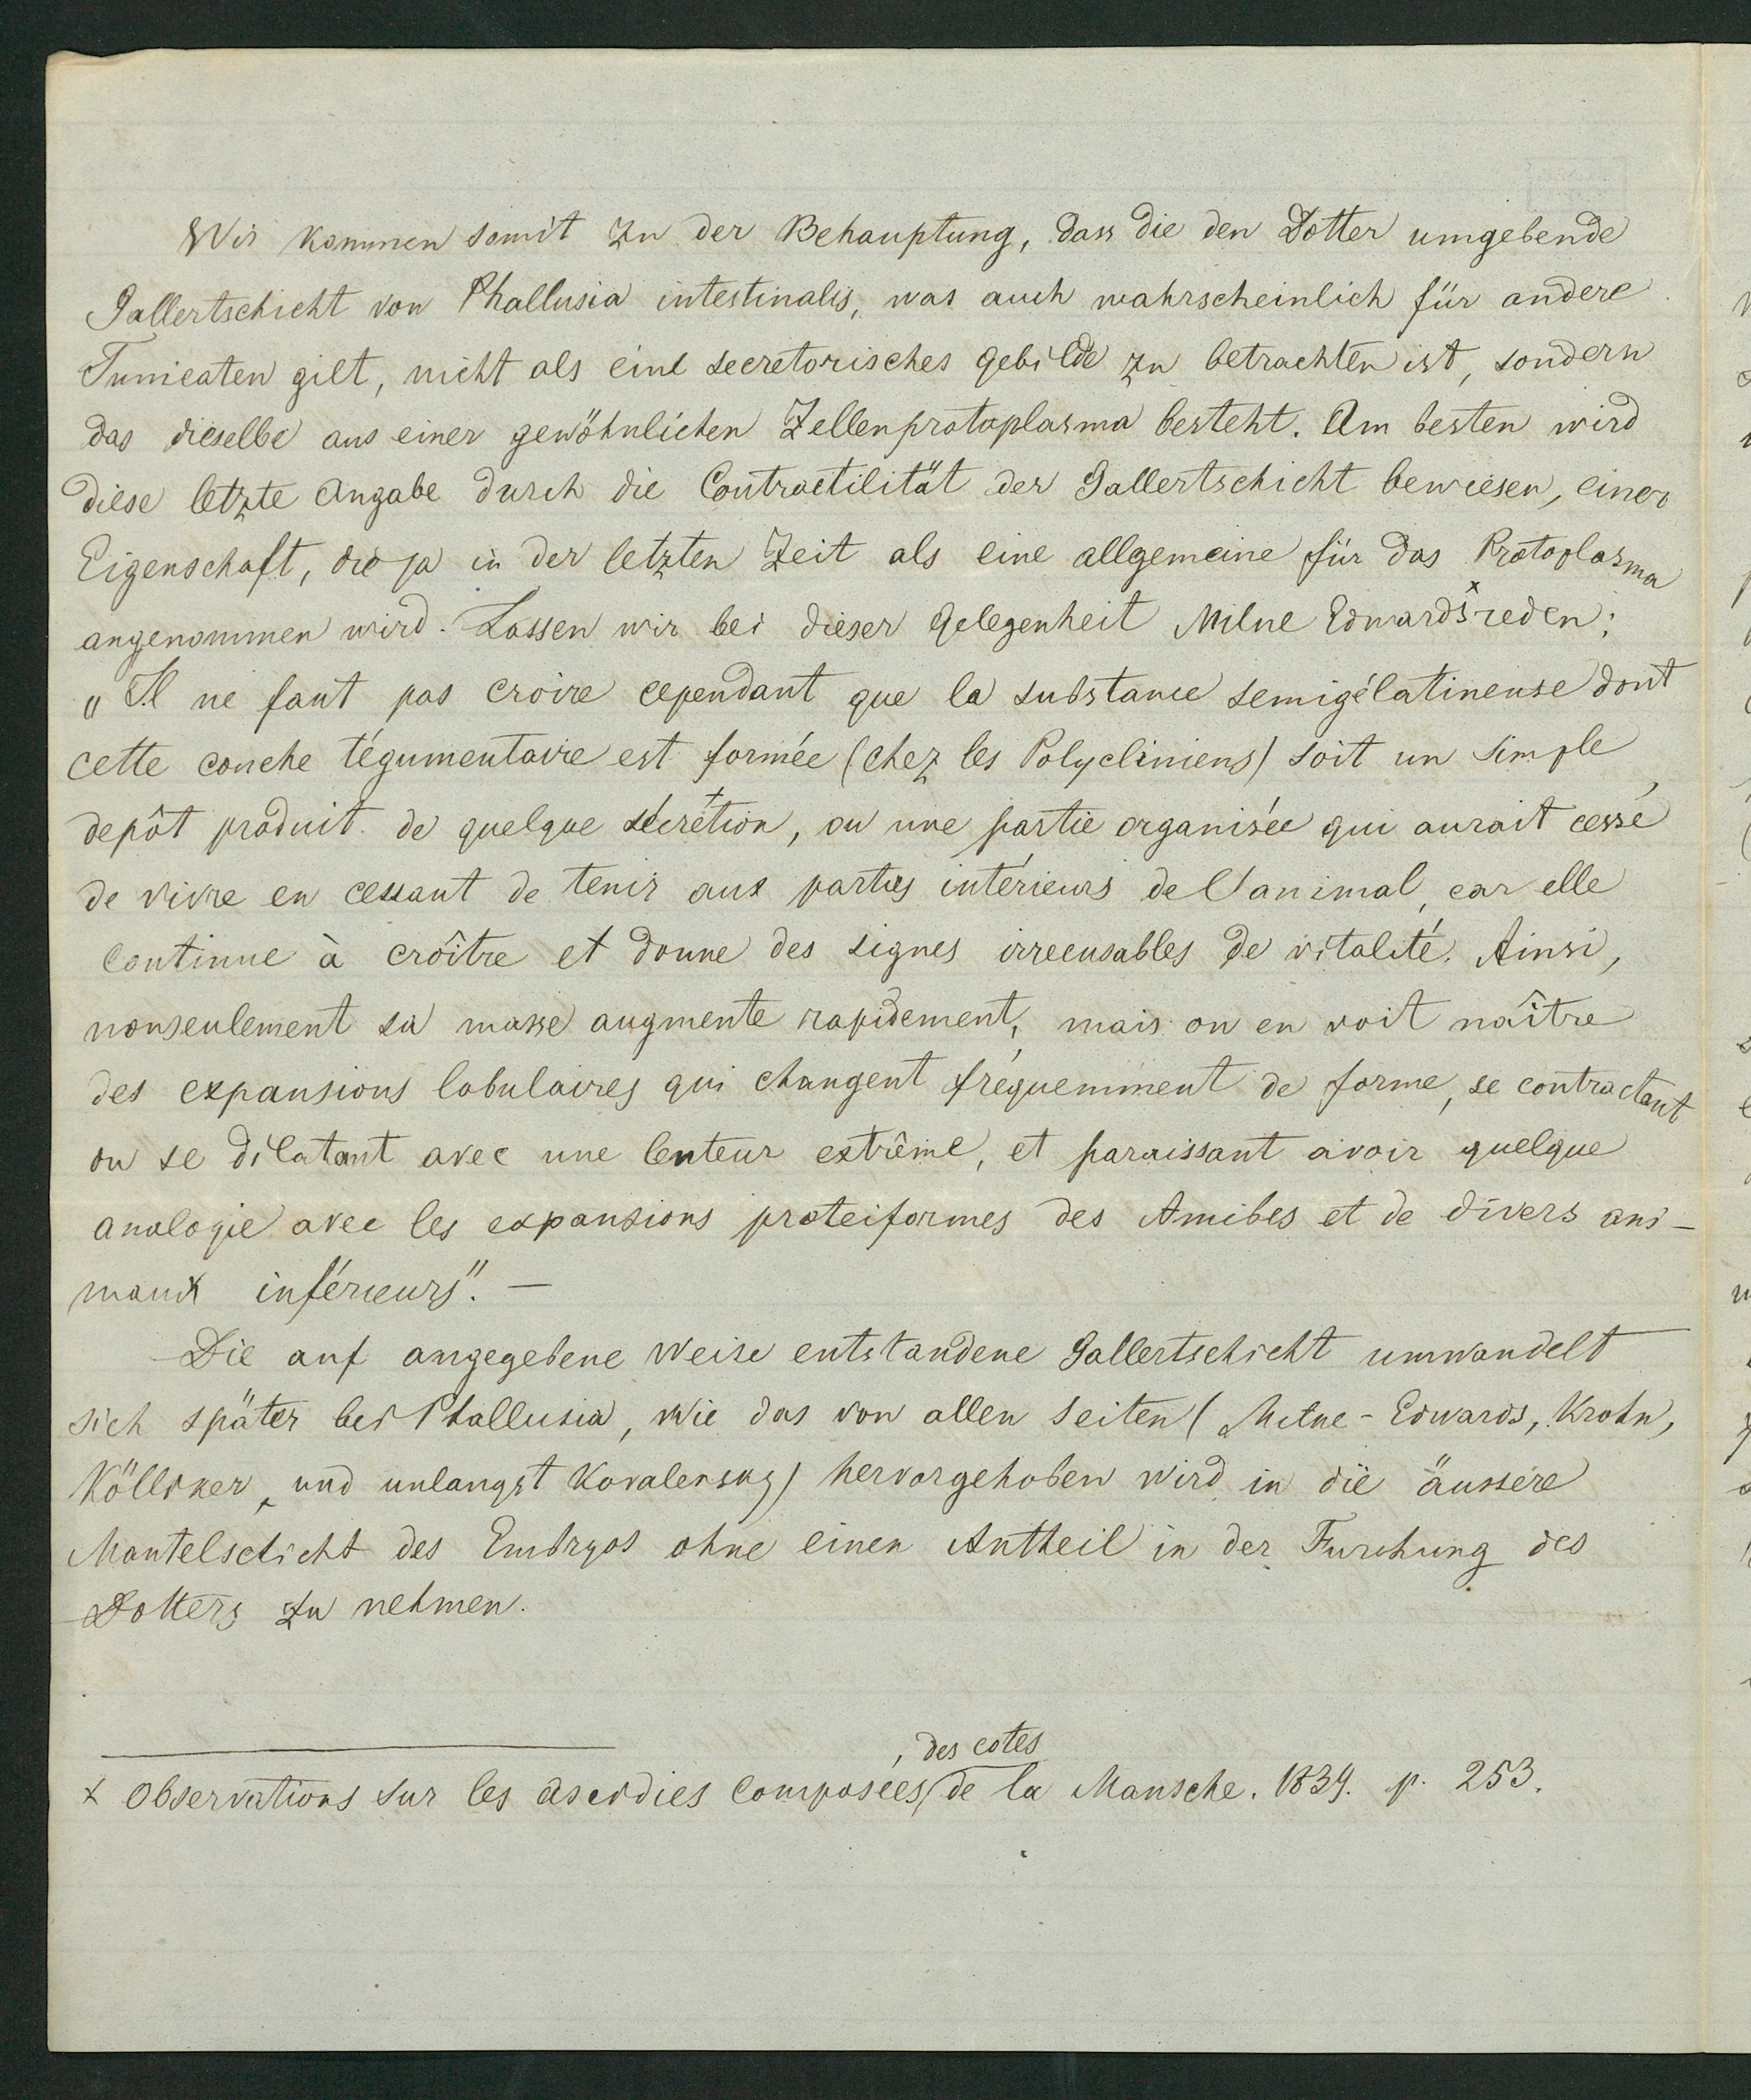 Wir kommen somit zu der Behauptung, dass die den Dotter umgebende
Gallertschicht von Phallusia intestinalis, was auch wahrscheinlich für andere
Tunicaten gilt, nicht als eine secretorisches Gebilde zu betrachten ist, sondern
das dieselbe aus einer gewöhnlichen Zellenprotoplasma besteht. Am besten wird
diese letzte Angabe durch die Contractilität der Gallertschicht bewiesen, einer
Eigenschaft, die ja in der letzten Zeit als eine allgemeine für das Protoplasma
angenommen wird. Lassen wir bei dieser Gelegenheit Milne Edwards x reden:
„Il ne faut pas croire cependant que la substance semigélatineuse dont
cette couche tégumentaire est formée (chez les Polycliniens) soit un simple
depôt produit de quelque sécrétion, ou une partie organisée qui aurait cessé
de vivre en cessant de tenir aux parties intérieurs de l'animal, car elle
continue à croître et donne des signes irrecusables de vitalité. Ainsi,
nonseulement sa masse augmente rapidement, mais on en voit naître
des expansions lobulaires qui changent fréquemment de forme, se contractant
ou se dilatant avec une lenteur extrême, et paraissant avoir quelque
analogie avec les expansions proteiformes des Amibes et de divers ani-
maux inférieurs". —
Die auf angegebene Weise entstandene Gallertschicht umwandelt
sich später bei Phallusia, wie das von allen Seiten (Milne-Edwards, Krohn,
Kölliker, und unlangst Kovalevsky) hervorgehoben wird in die äussere
Mantelschicht des Embryos ohne einen Antheil in der Furchung des
Dotters zu nehmen.
, des cotes
x Observations sur les Ascidies composées de la Mansche. 1839. p. 253.